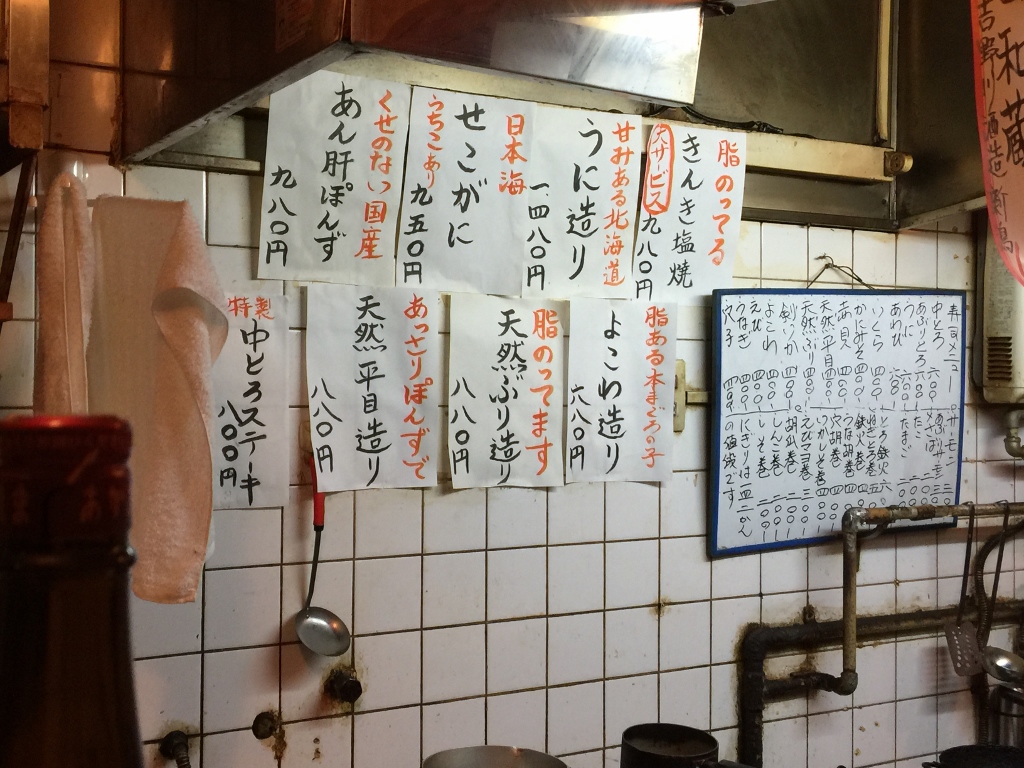 脂のってる
きんき塩焼
大サービス九八〇円
甘みある北海道
うに造り
一、四八〇円
日本海
せこがに
うちこあり
九五〇円
くせのない国産
あん肝ぽんず
九八〇円
脂ある本まぐろの子
よこわ造り
六八〇円
脂のってます
天然ぶり造り
八八〇円
あっさりぽんずで
天然平目造り
八八〇円
特製
中とろステーキ
八〇〇円
寿司メニュー
中とろ 六〇〇
あぶりとろ 六〇〇
うに 六〇〇
あわび 六〇〇
いくら 四〇〇
かにみそ 四〇〇
赤貝 四〇〇
天然平目 四〇〇
天然ぶり 四〇〇
よこわ 四〇〇
えび 四〇〇
うなぎ 四〇〇
穴子 四〇〇
サーモン
たこ
たまご
とろ鉄火
鉄火巻
うなぎ胡巻
穴胡巻
えびマヨ巻
胡瓜巻
しんこ巻
しそ巻
にぎりは一皿二かん
の値段です
和蔵
吉野川酒造